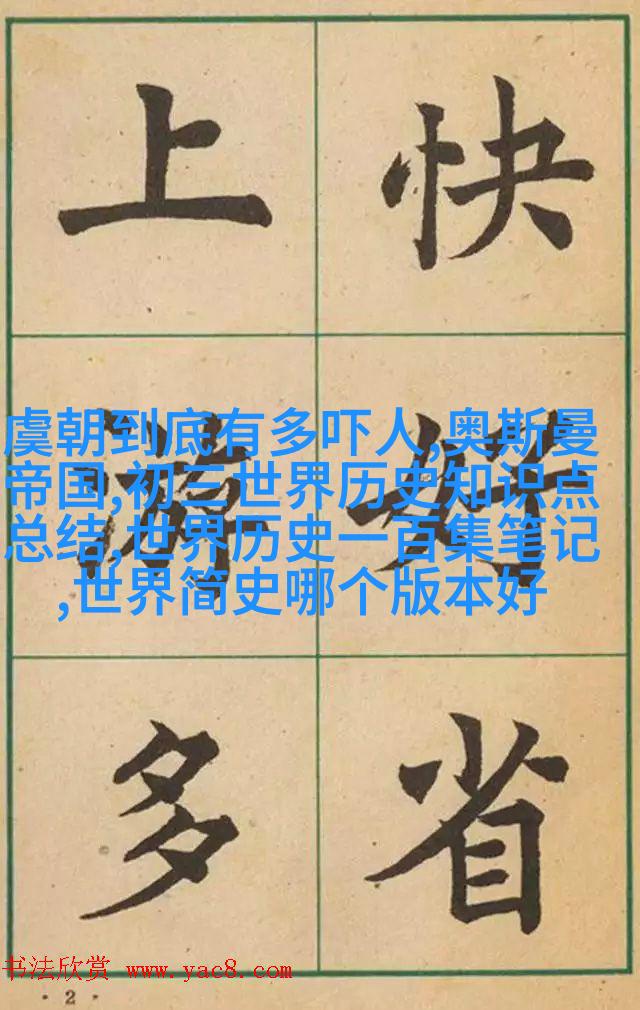 上游多
快好省
虞朝到底有多吓人,奥斯曼
帝国,初三世界历史知识点
总结,世界历史一百集笔记
,世界简史哪个版本好
书法欣赏 www.yac8.com
·2·